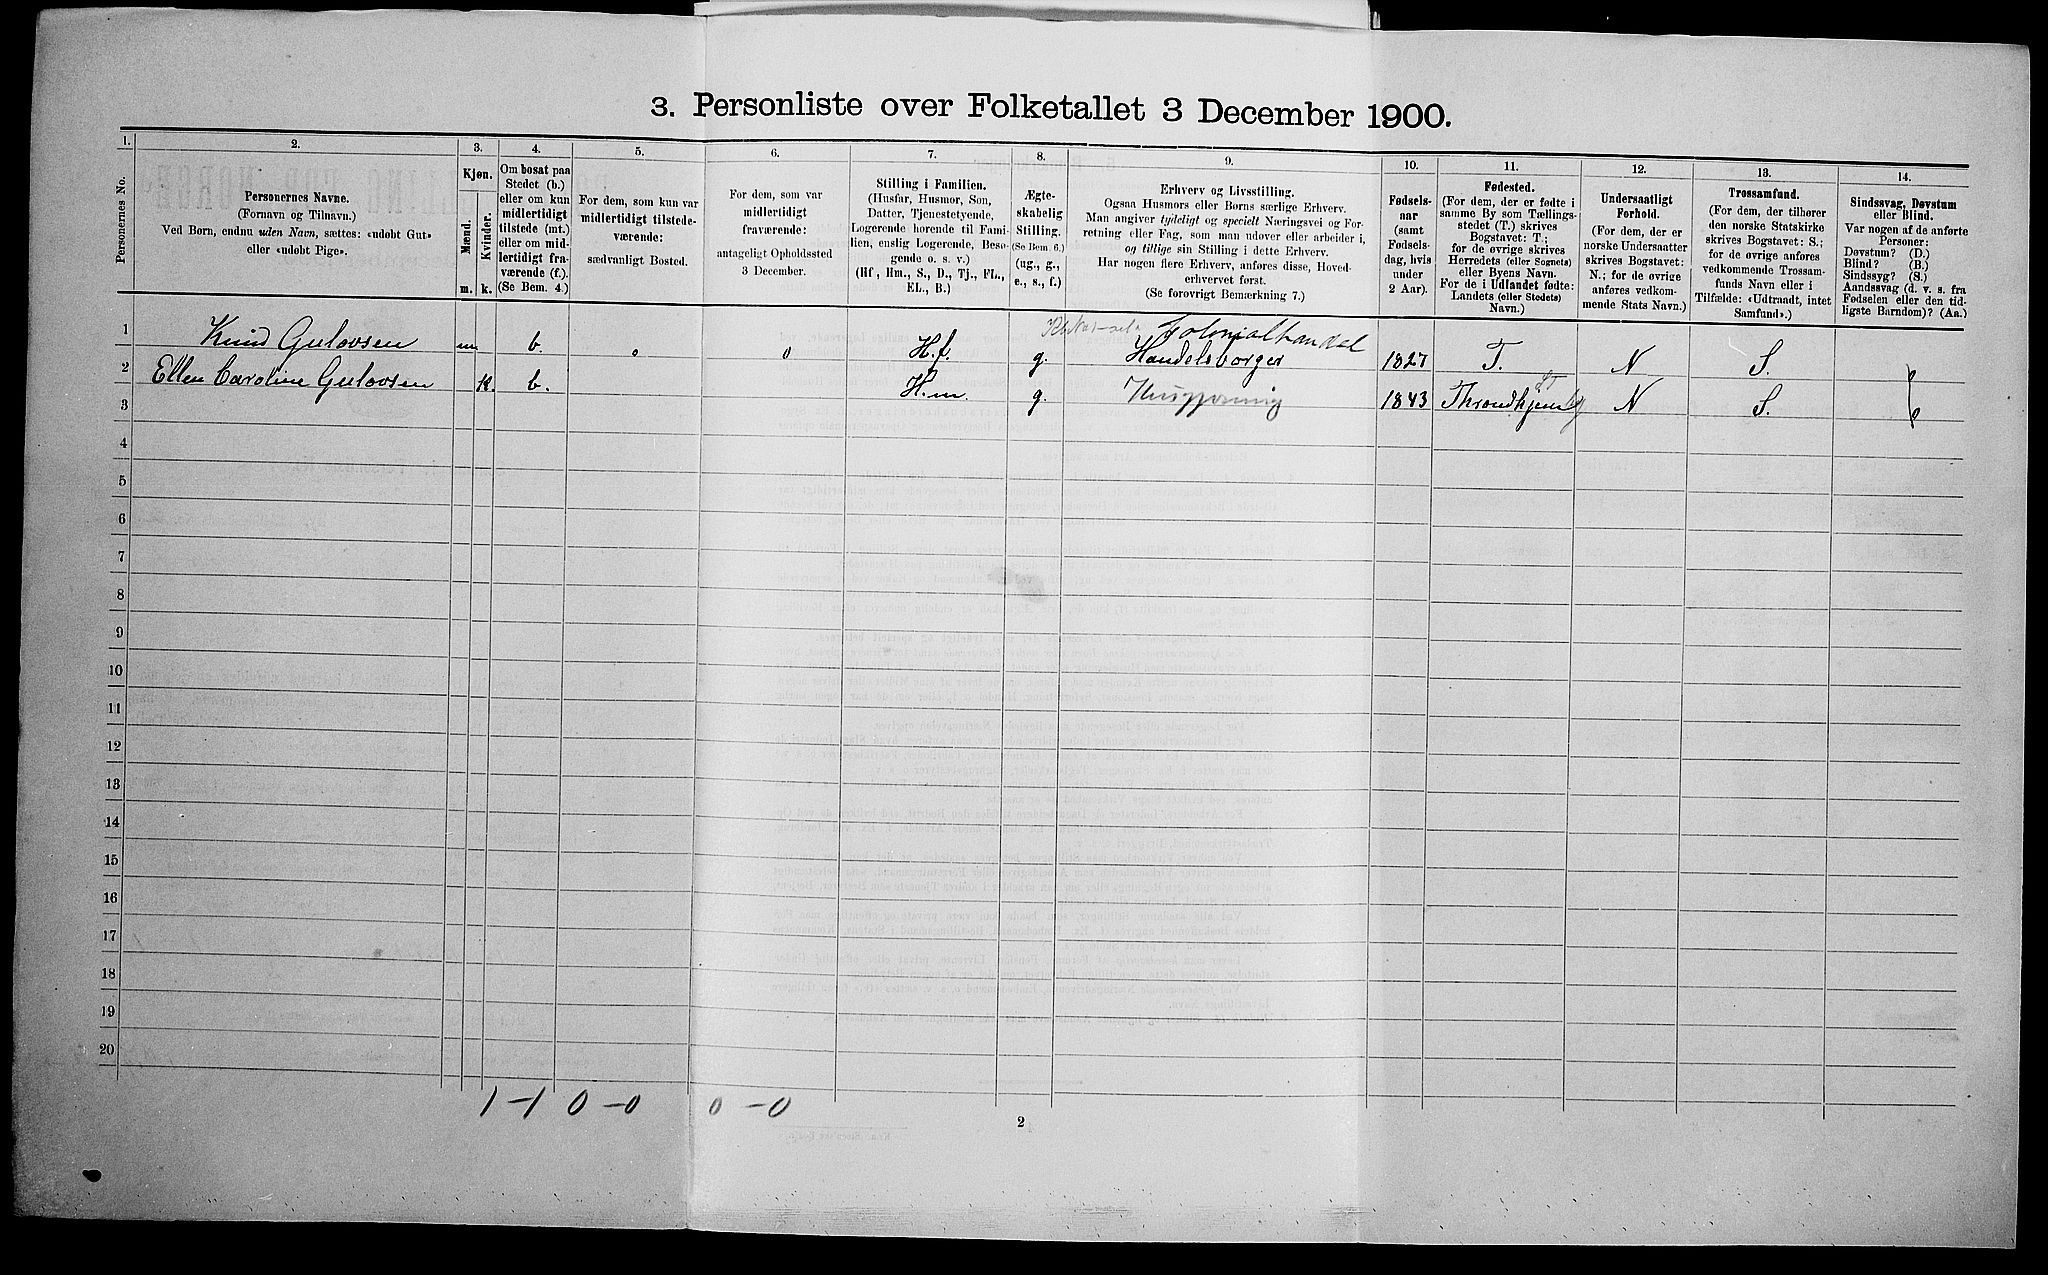 3. Personliste over Folketallet 3 December 1900.
1.
Personernes No.
2.
Personernes Navne.
(Fornavn og Tilnavn.)
Ved Børn, endnu uden Navn, sættes: «udøbt Gut»
eller «udøbt Pige».
3.
Kjøn.
Mænd.
Kvinder.
m.
k.
4.
Om bosat paa
Stedet (b.)
eller om kun
midlertidigt
tilstede (mt.)
eller om mid-
lertidigt fra-
værende (f.).
(Se Bem. 4.)
5.
For dem, som kun var
midlertidigt tilstede-
værende:
sædvanligt Bosted.
6.
For dem, som var
midlertidigt
fraværende:
antageligt Opholdssted
3 December.
7.
Stilling i Familien.
(Husfar, Husmor, Søn,
Datter, Tjenestetyende,
Logerende hørende til Fami-
lien, enslig Logerende, Besø-
gende o. s. v.)
(Hf., Hm., S., D., Tj., FL.,
EL., B.)
8.
Ægte-
skabelig
Stilling.
(Se Bem. 6.)
(ug., g.,
e., s., f.)
9.
Erhverv og Livsstilling.
Ogsaa Husmors eller Børns særlige Erhverv.
Man angiver tydeligt og specielt Næringsvei og For-
retning eller Fag, som man udøver eller arbeider i,
og tillige sin Stilling i dette Erhverv.
Har nogen flere Erhverv, anføres disse, Hoved-
erhvervet først.
(Se forøvrigt Bemærkning 7.)
10.
Fødsels-
aar
(samt
Fødsels-
dag, hvis
under
2 Aar).
11.
Fødested.
(For dem, der er fødte i
samme By som Tællings-
stedet (T.) skrives
Bogstavet: T.;
for de øvrige skrives
Herredets (eller Sognets)
eller Byens Navn.
For de i Udlandet fødte:
Landets (eller Stedets)
Navn.)
12.
Undersaatligt
Forhold.
(For dem, der er
norske Undersaatter
skrives Bogstavet:
N.; for de øvrige
anføres vedkom-
mende Stats Navn.)
13.
Trossamfund.
(For dem, der tilhører
den norske Statskirke
skrives Bogstavet: S.;
for de øvrige anføres
vedkommende Trossam-
funds Navn eller i
Tilfælde: «Udtraadt, intet
Samfund».)
14.
Sindssvag, Døvstum
eller Blind.
Var nogen af de anførte
Personer:
Døvstum? (D.)
Blind? (B.)
Sindssyg? (S.)
Aandssvag (d. v. s. fra
Fødselen eller den tid-
ligste Barndom)? (Aa.)
1 Knud Gulovsen m. b. 0 0 H.f. g. Kolonialhandel
Handelsborger 1827 T. N S. 0
2 Ellen Caroline Gulovsen K. b. H.m. g. Husgjerning 1843 Throndhjem N S. 0
3
4
5
6
7
8
9
10
11
12
13
14
15
16
17
18
19
20
1–1 0–0 0–0
2